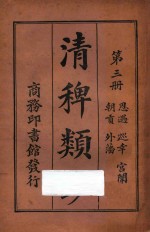 第三册
恩遇 巡幸 宮闈
朝貢 外藩
清稗類
商務印書館發行